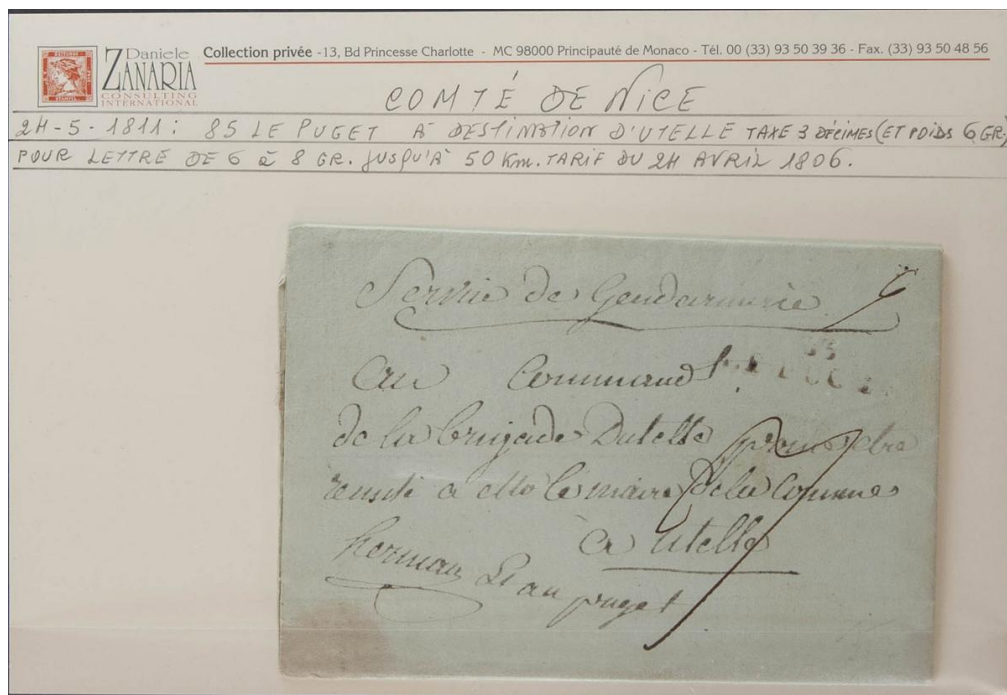 Daniele
ZANARIA
CONSULTING
INTERNATIONAL
Collection privée -13, Bd Princesse Charlotte - MC 98000 Principauté de Monaco - Tél. 00 (33) 93 50 39 36 - Fax. (33) 93 50 48 56
COMTÉ DE NICE
24-5-1811: 85 LE PUGET À DESTINATION D'UTELLE TAXE 3 DÉCIMES (ET POIDS 6 GR.)
POUR LETTRE DE 6 à 8 GR. JUSQU'À 50 Km. TARIF DU 24 AVRIL 1806.
Service de Gendarmerie
6
au Command
de la brigade Dutelle pour etre
remise a le maire de la Commune
a utelle
herman au puget